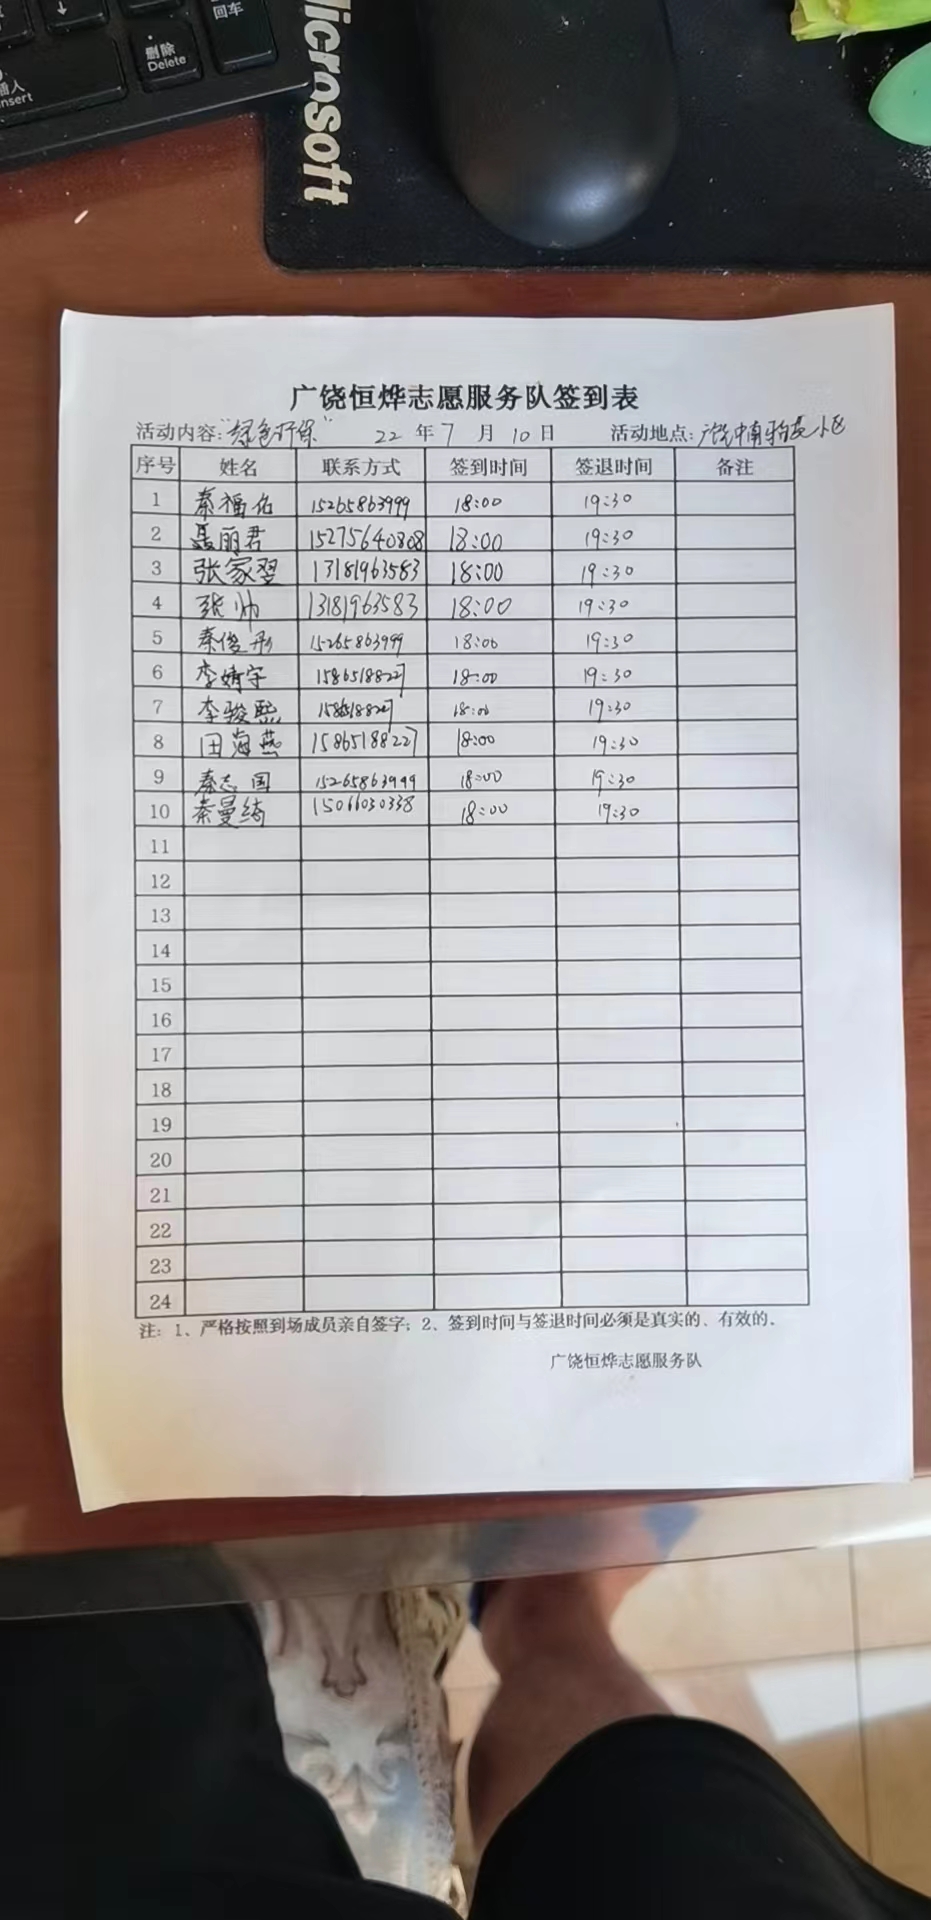 回车
删除
Delete
插入
Insert
Microsoft
广饶恒烨志愿服务队签到表
活动内容:"绿色环保" 22 年 7 月 10 日 活动地点: 广饶中南 小区
序号 姓名 联系方式 签到时间 签退时间 备注
1 秦福佑 15265863999 18:00 19:30
2 聂丽君 15275640808 18:00 19:30
3 张家翌 13181963583 18:00 19:30
4 张帅 13181963583 18:00 19:30
5 秦俊彤 15265863999 18:00 19:30
6 李婧宇 15865188227 18:00 19:30
7 李骏熙 15865188227 18:00 19:30
8 田海燕 15865188227 18:00 19:30
9 秦志国 15265863999 18:00 19:30
10 秦曼绮 15066030338 18:00 19:30
11
12
13
14
15
16
17
18
19
20
21
22
23
24
注: 1、严格按照到场成员亲自签字; 2、签到时间与签退时间必须是真实的、有效的。
广饶恒烨志愿服务队